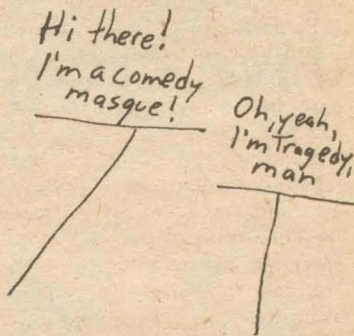 Hi there!
I'm a comedy
masque!
Oh, yeah,
I'm Tragedy,
man